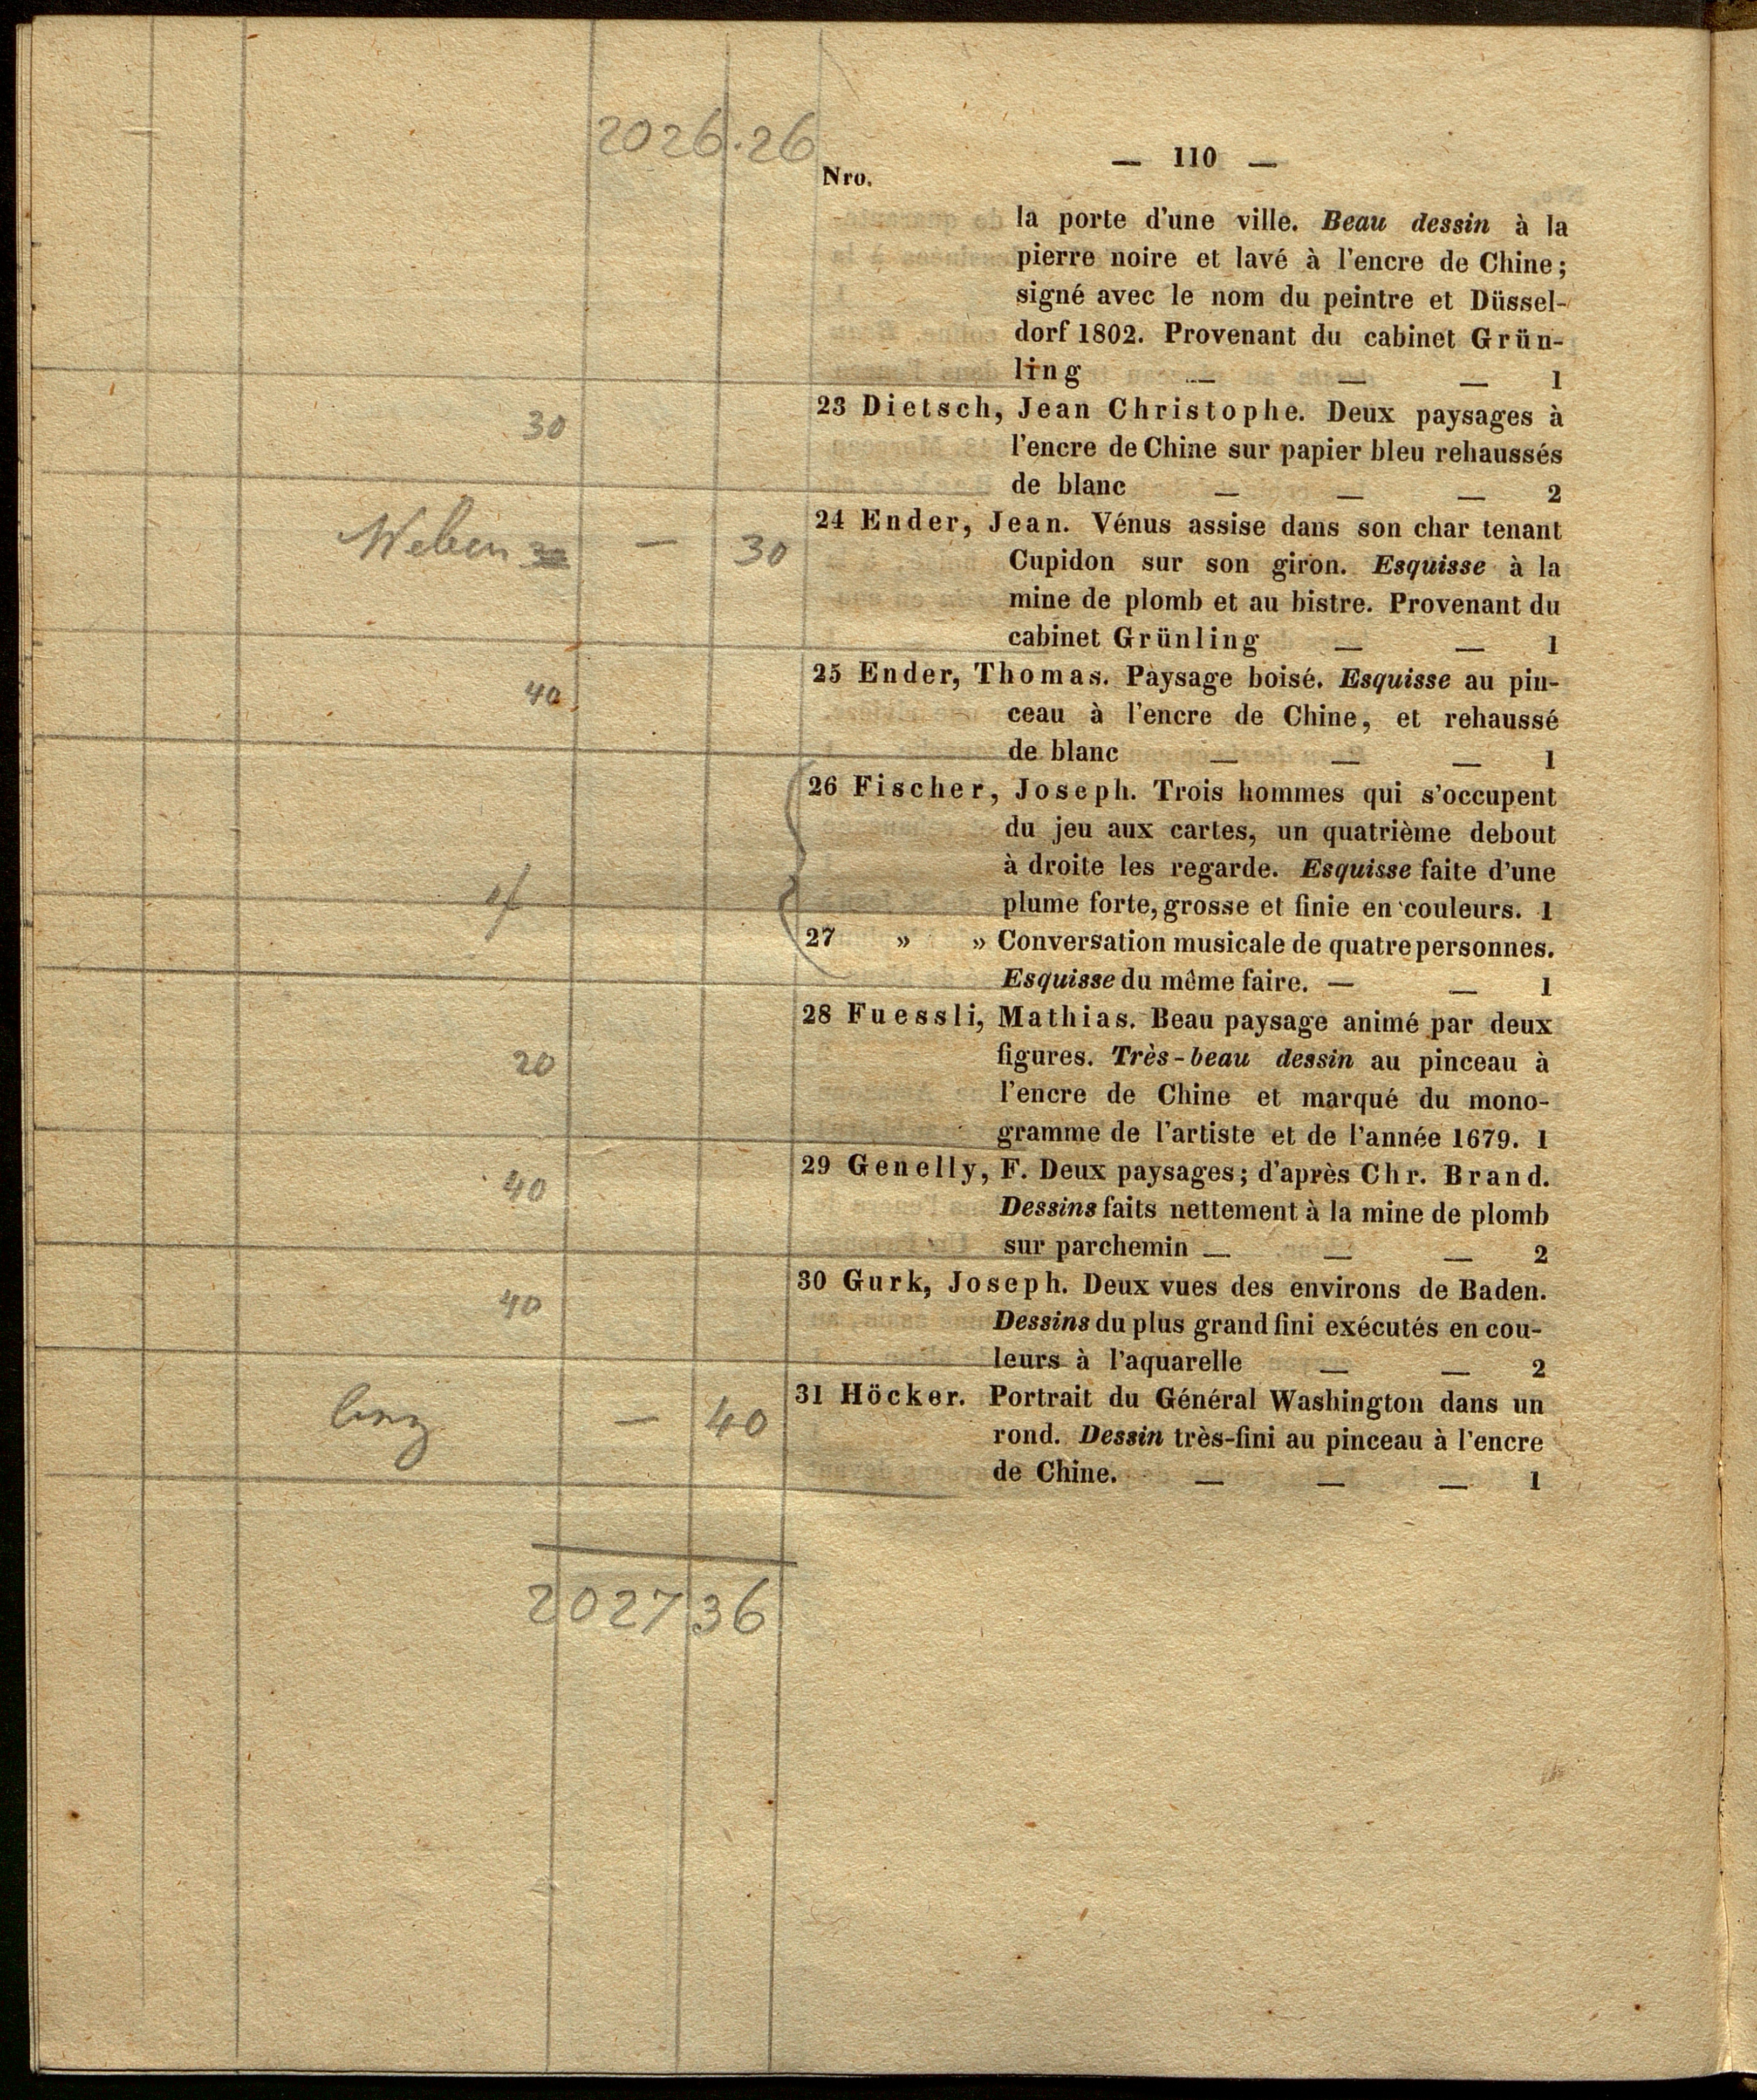 2026.26
— 110 —
Nro.
la porte d'une ville. Beau dessin à la
pierre noire et lavé à l'encre de Chine;
signé avec le nom du peintre et Düssel-
dorf 1802. Provenant du cabinet Grün-
ling — — — 1
30
23 Dietsch, Jean Christophe. Deux paysages à
l'encre de Chine sur papier bleu rehaussés
de blanc — — — 2
— 30
24 Ender, Jean. Vénus assise dans son char tenant
Cupidon sur son giron. Esquisse à la
mine de plomb et au bistre. Provenant du
cabinet Grünling — — 1
40
25 Ender, Thomas. Paysage boisé. Esquisse au pin-
ceau à l'encre de Chine, et rehaussé
de blanc — — — 1
26 Fischer, Joseph. Trois hommes qui s'occupent
du jeu aux cartes, un quatrième debout
à droite les regarde. Esquisse faite d'une
plume forte, grosse et finie en couleurs. 1
27 » » Conversation musicale de quatre personnes.
Esquisse du même faire. — — 1
28 Fuessli, Mathias. Beau paysage animé par deux
20
figures. Très-beau dessin au pinceau à
l'encre de Chine et marqué du mono-
gramme de l'artiste et de l'année 1679. 1
40
29 Genelly, F. Deux paysages; d'après Chr. Brand.
Dessins faits nettement à la mine de plomb
sur parchemin — — — 2
40
30 Gurk, Joseph. Deux vues des environs de Baden.
Dessins du plus grand fini exécutés en cou-
leurs à l'aquarelle — — 2
— 40
31 Höcker. Portrait du Général Washington dans un
rond. Dessin très-fini au pinceau à l'encre
de Chine. — — — 1
2027 36